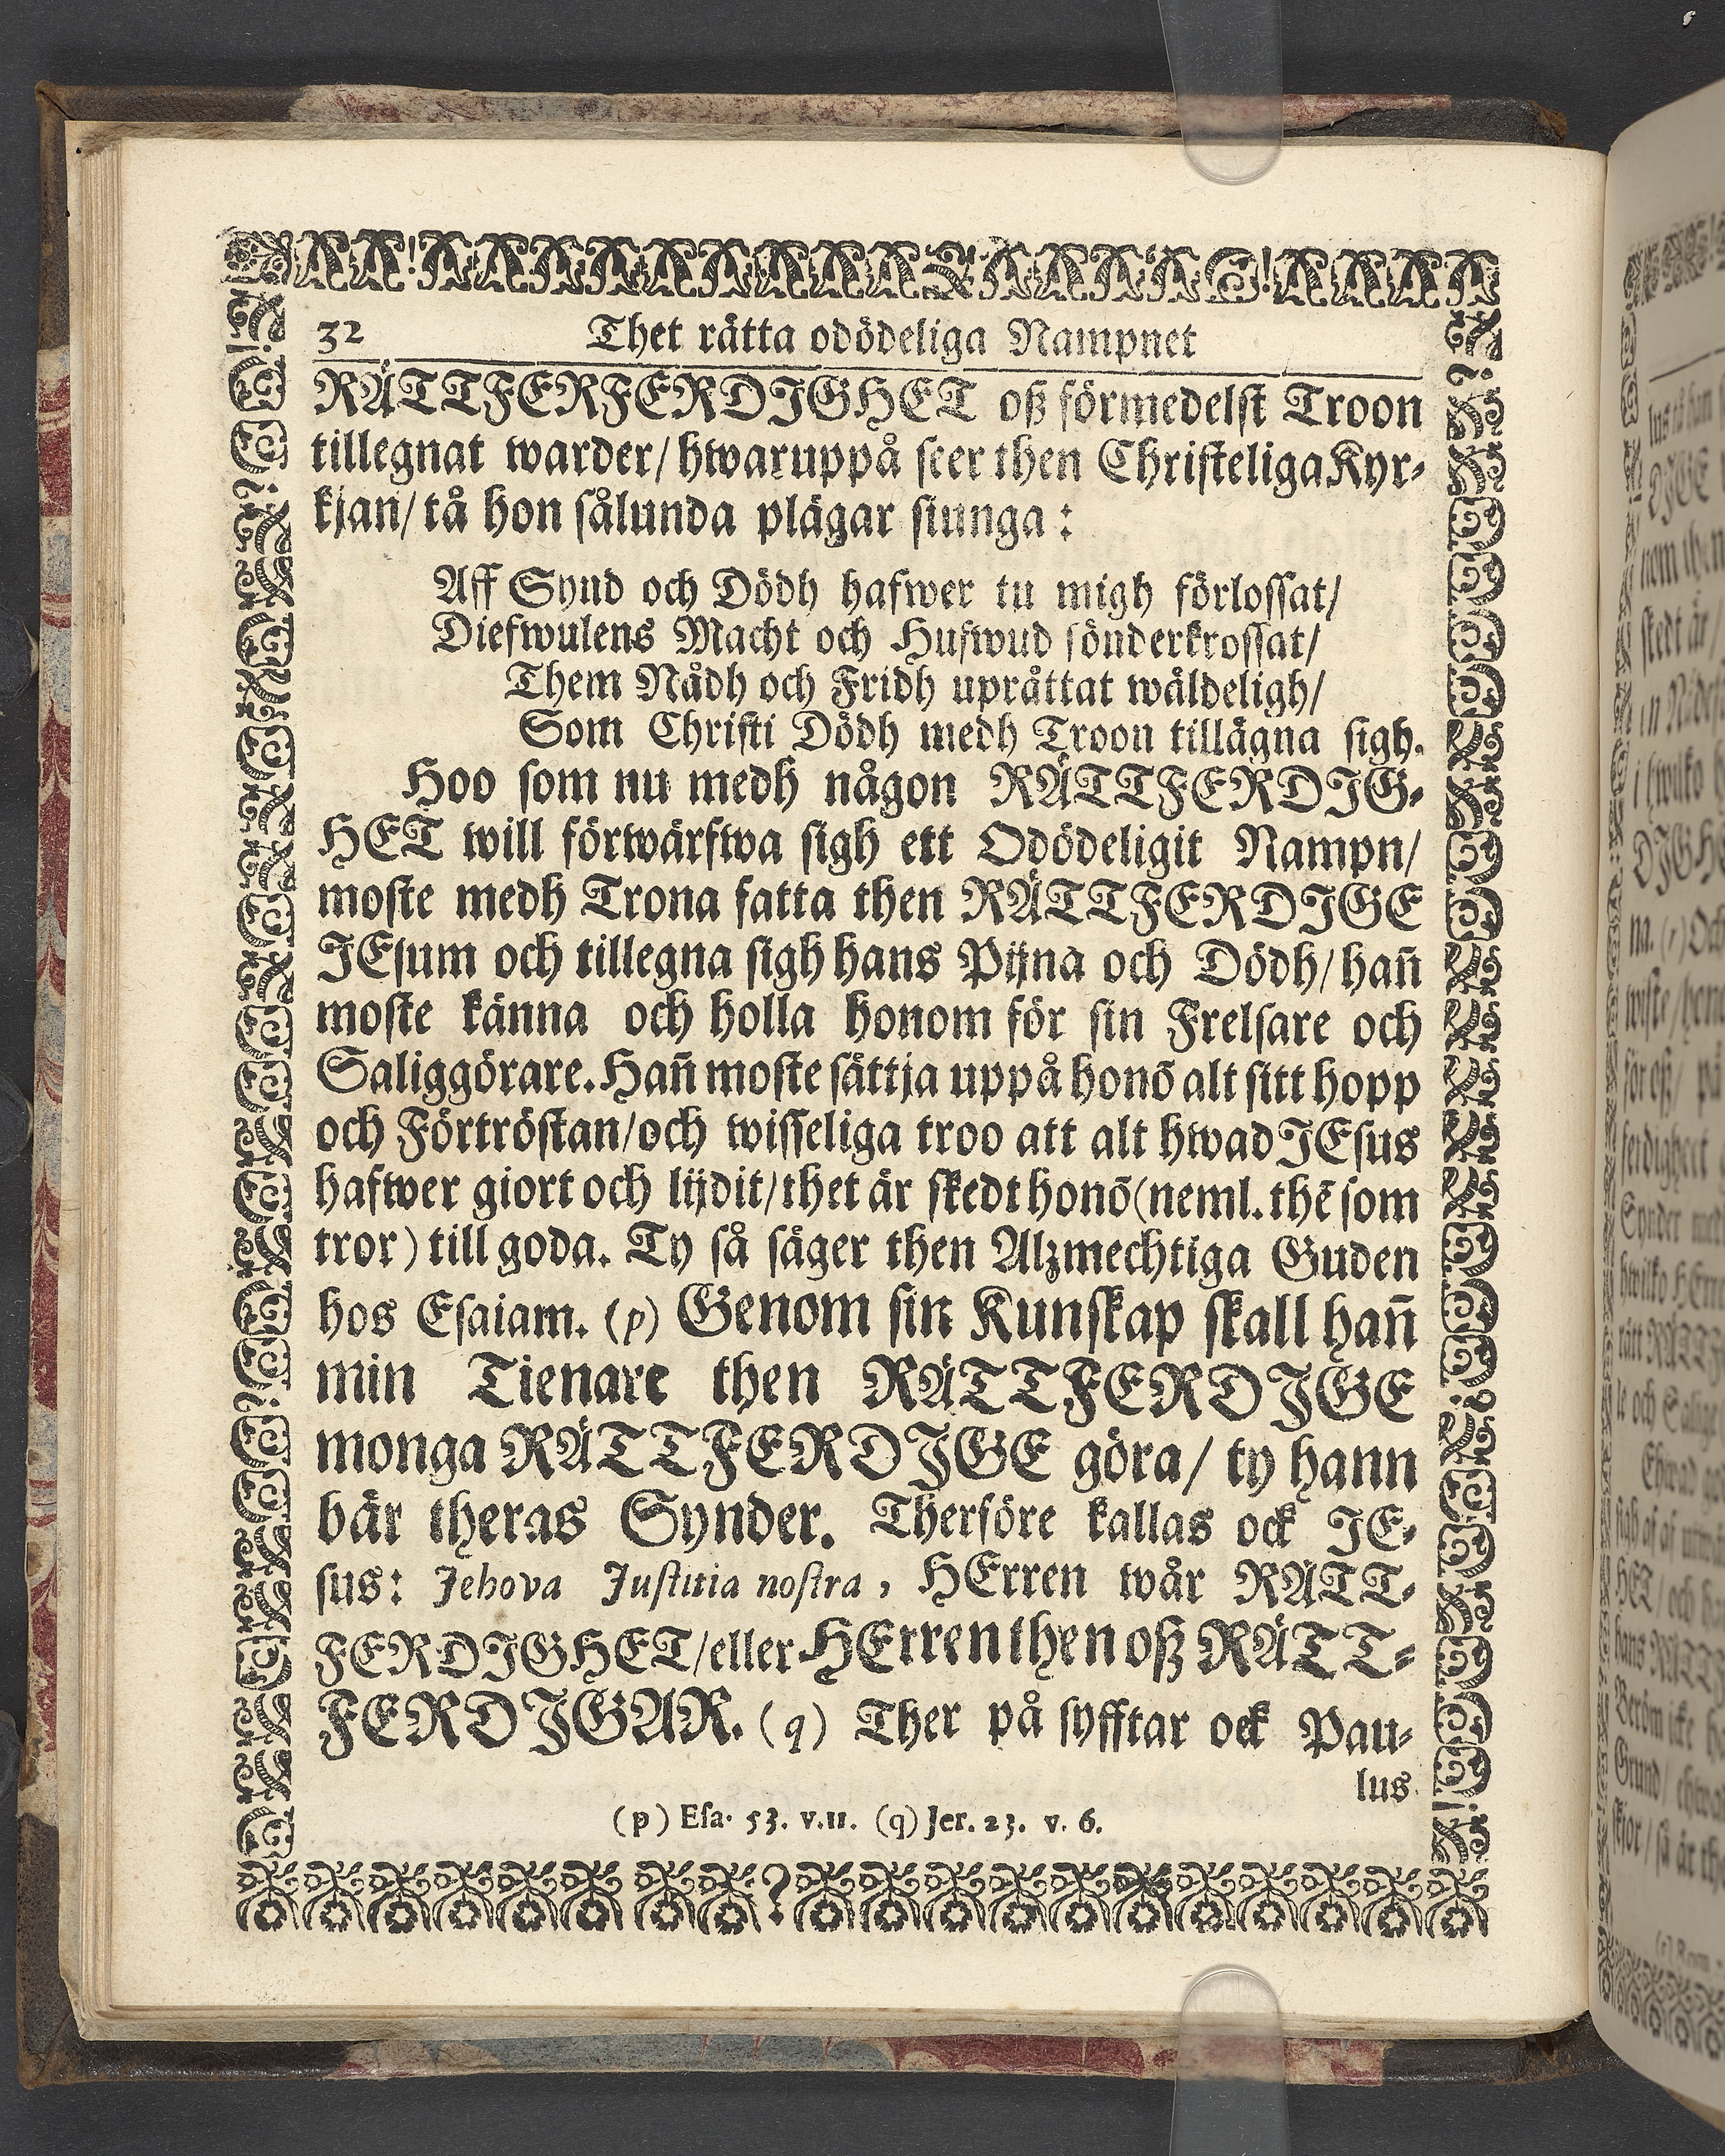 32 Thet rätta odödeliga Nampnet
RÄTTFERFERDIGHET oß förmedelst Troon
tillegnat warder/ hwaruppå seer then Christeliga Kyr-
kjan/ tå hon sålunda plägar siunga:
Aff Synd och Dödh hafwer tu migh förlossat/
Diefwulens Macht och Hufwud sönderkrossat/
Them Nådh och Fridh uprättat wäldeligh/
Som Christi Dödh medh Troon tillägna sigh.
Hoo som nu medh någon RÄTTFERDIG-
HET will förwärfwa sigh ett Odödeligit Nampn/
moste medh Trona fatta then RÄTTFERDIGE
JEsum och tillegna sigh hans Pijna och Dödh/ han̄
moste känna och holla honom för sin Frelsare och
Saliggörare. Han̄ moste sättja uppå honō alt sitt hopp
och Förtröstan/ och wisseliga troo att alt hwad JEsus
hafwer giort och lijdit/ thet är skedt honō (neml. thē som
tror) till goda. Ty så säger then Alzmechtiga Guden
hos Esaiam. (p) Genom sin Kunskap skall han̄
min Tienare then RÄTTFERDIGE
monga RÄTTFERDIGE göra/ ty hann
bär theras Synder. Therföre kallas ock JE-
sus: Jehova Justitia nostra, HErren wår RÄTT-
FERDIGHET/ eller HErren then oß RÄTT-
FERDIGAR. (q) Ther på syfftar ock Pau-
lus
(p) Esa. 53. v. 11. (q) Jer. 23. v. 6.